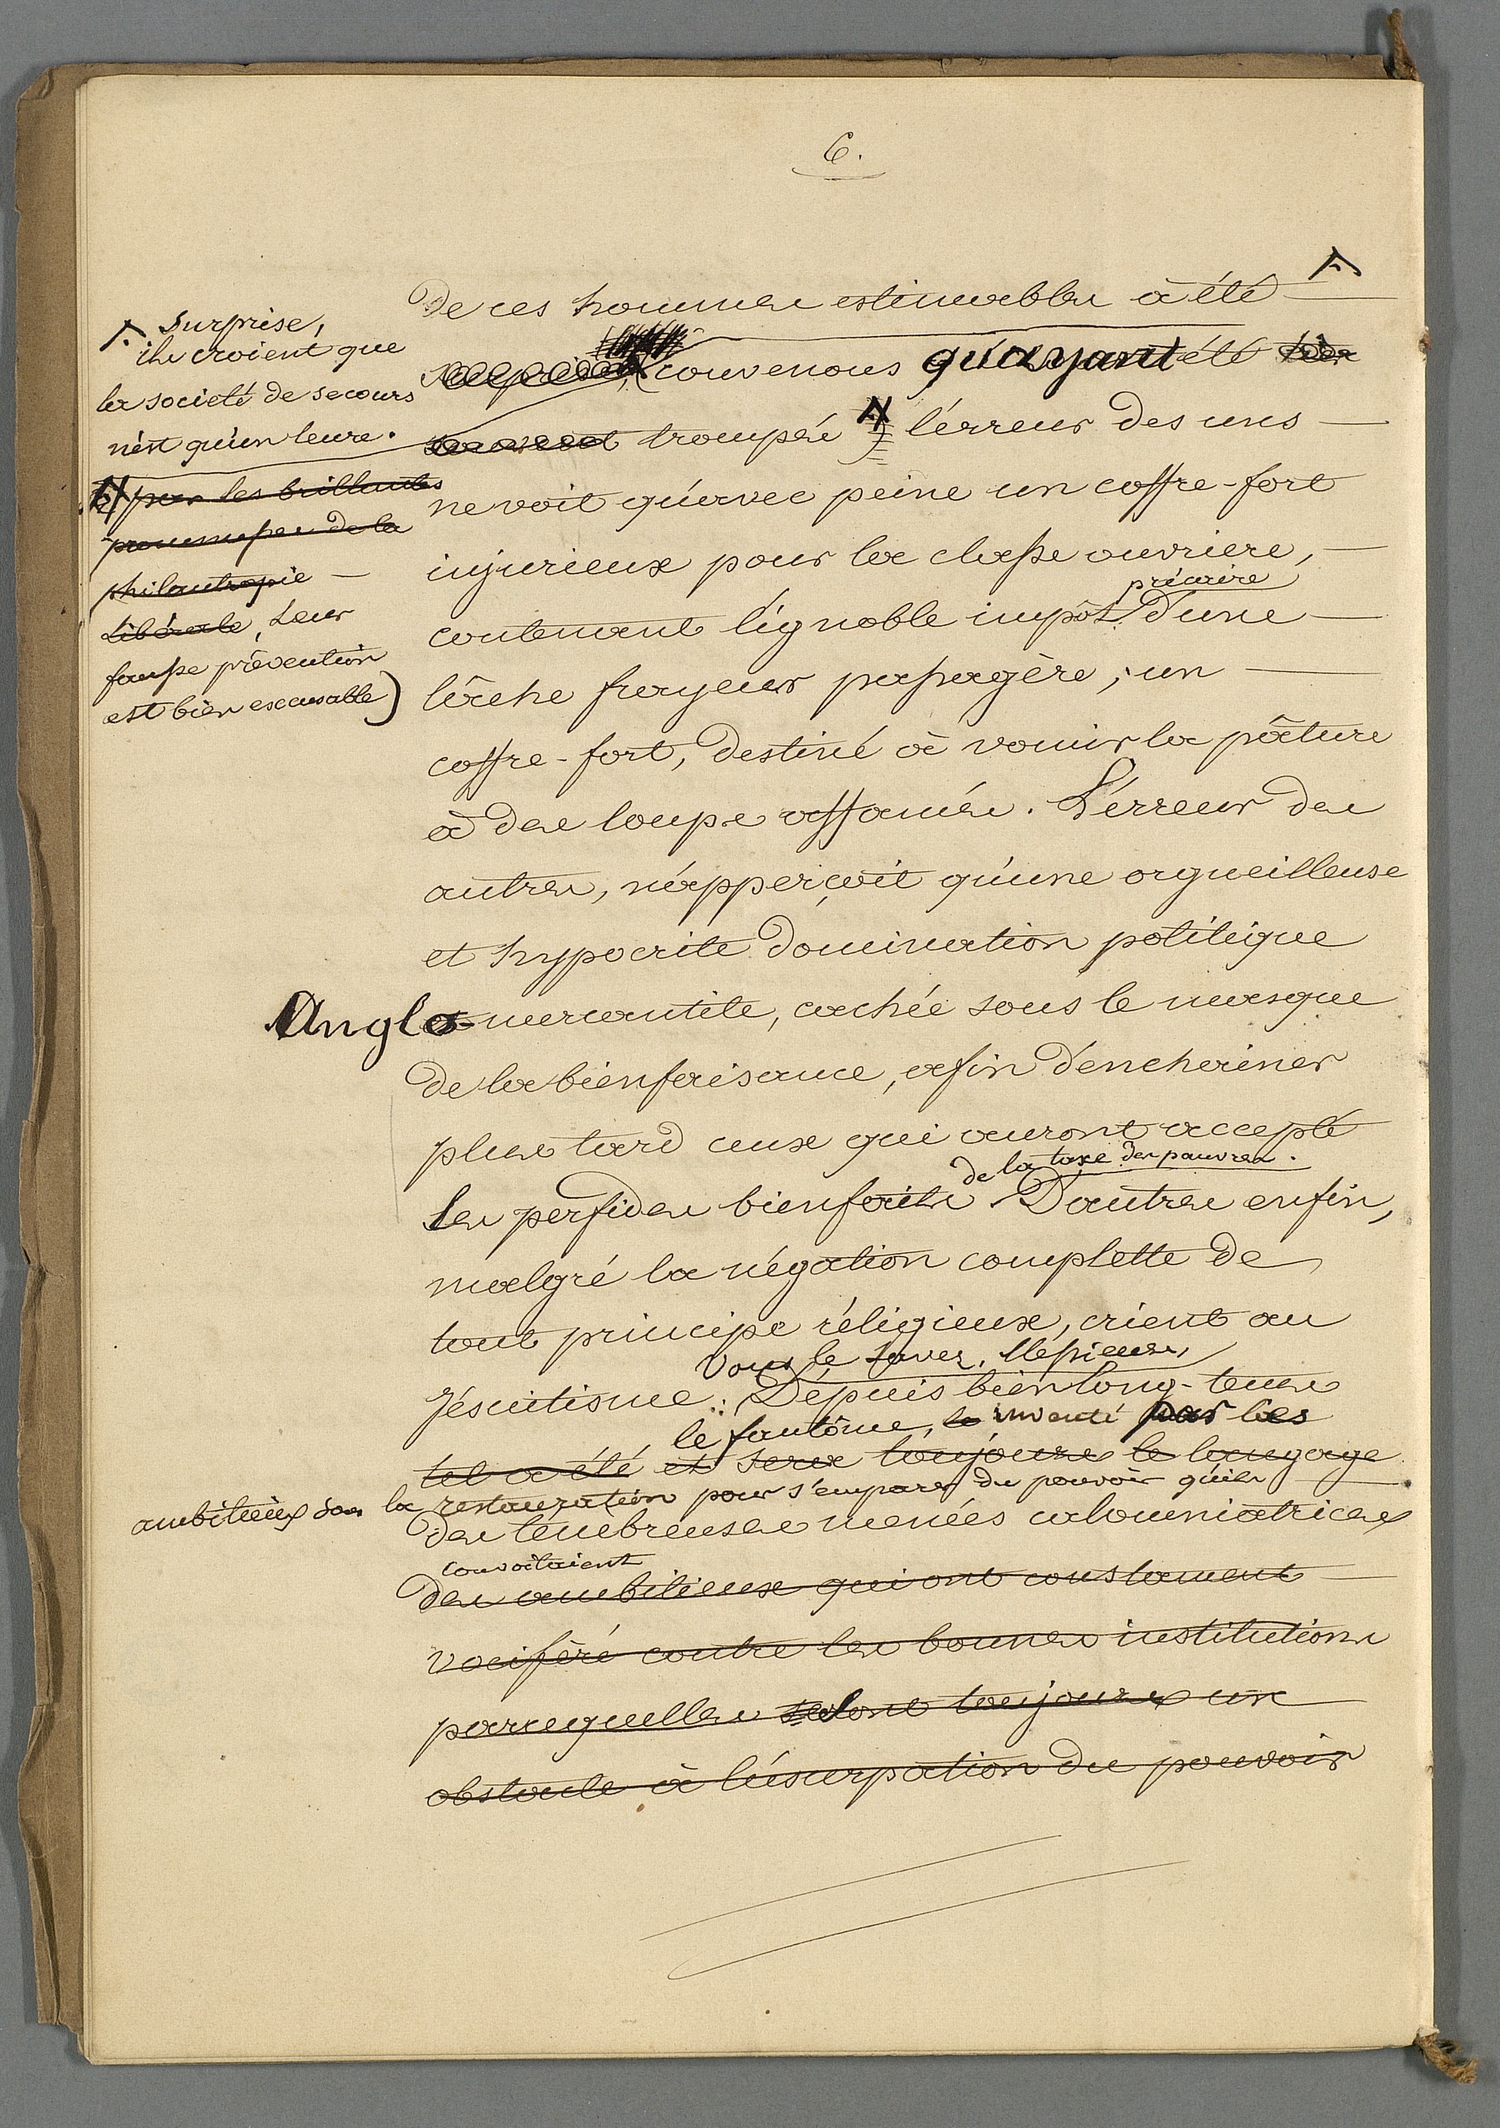 6.
De ces hommes estimables à été
surprise, (convenons qu'ayant été très
souvent trompés) l'érreur des uns
ne voit qu'avec peine un coffre-fort
injurieux pour la classe ouvriere,
précaire
contenant l'ignoble impôt d'une
lâche frayeur passagère; un
coffre-fort, destiné à vomir la pâture
à des loups affamés. L'érreur des
autres, n'apperçoit qu'une orgueilleuse
et hypocrite domination politique
Anglo-mercantile, cachée sous le masque
de la bienfaisance, afin d'enchainer
plus tard ceux qui auront accepté
de la taxe des pauvres.
les perfides bienfaits. D'autres enfin,
malgré la négation complette de
tout principe réligieux, crient au
Vous le savez, Messieurs,
Jésuitisme: Dépuis bien long-tems
le fantôme, inventé par les
tel a été et sera toujours le langage
ambitieux sous la restauration pour s'emparer du pouvoir qu'ils
des tenebreuses menées calomniatrices
convoitaient
des ambitieux qui ont constament
vociféré contre les bonnes institutions
parcequelles sont toujours un
obstacle à l'usurpation du pouvoir
surprise,
ils croient que
la societé de secours
n'est qu'un leure.
par les brillantes
promesses de la
philantropie
libérale, leur
fausse prévention
est bien excusable)